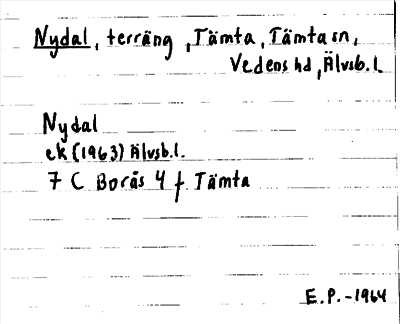 Nydal, terräng, Tämta, Tämta sn,
Vedens hd, Älvsb. l.
Nydal
ek (1963) Älvsb. l.
7 C Borås 4 f Tämta
E.P. -1964